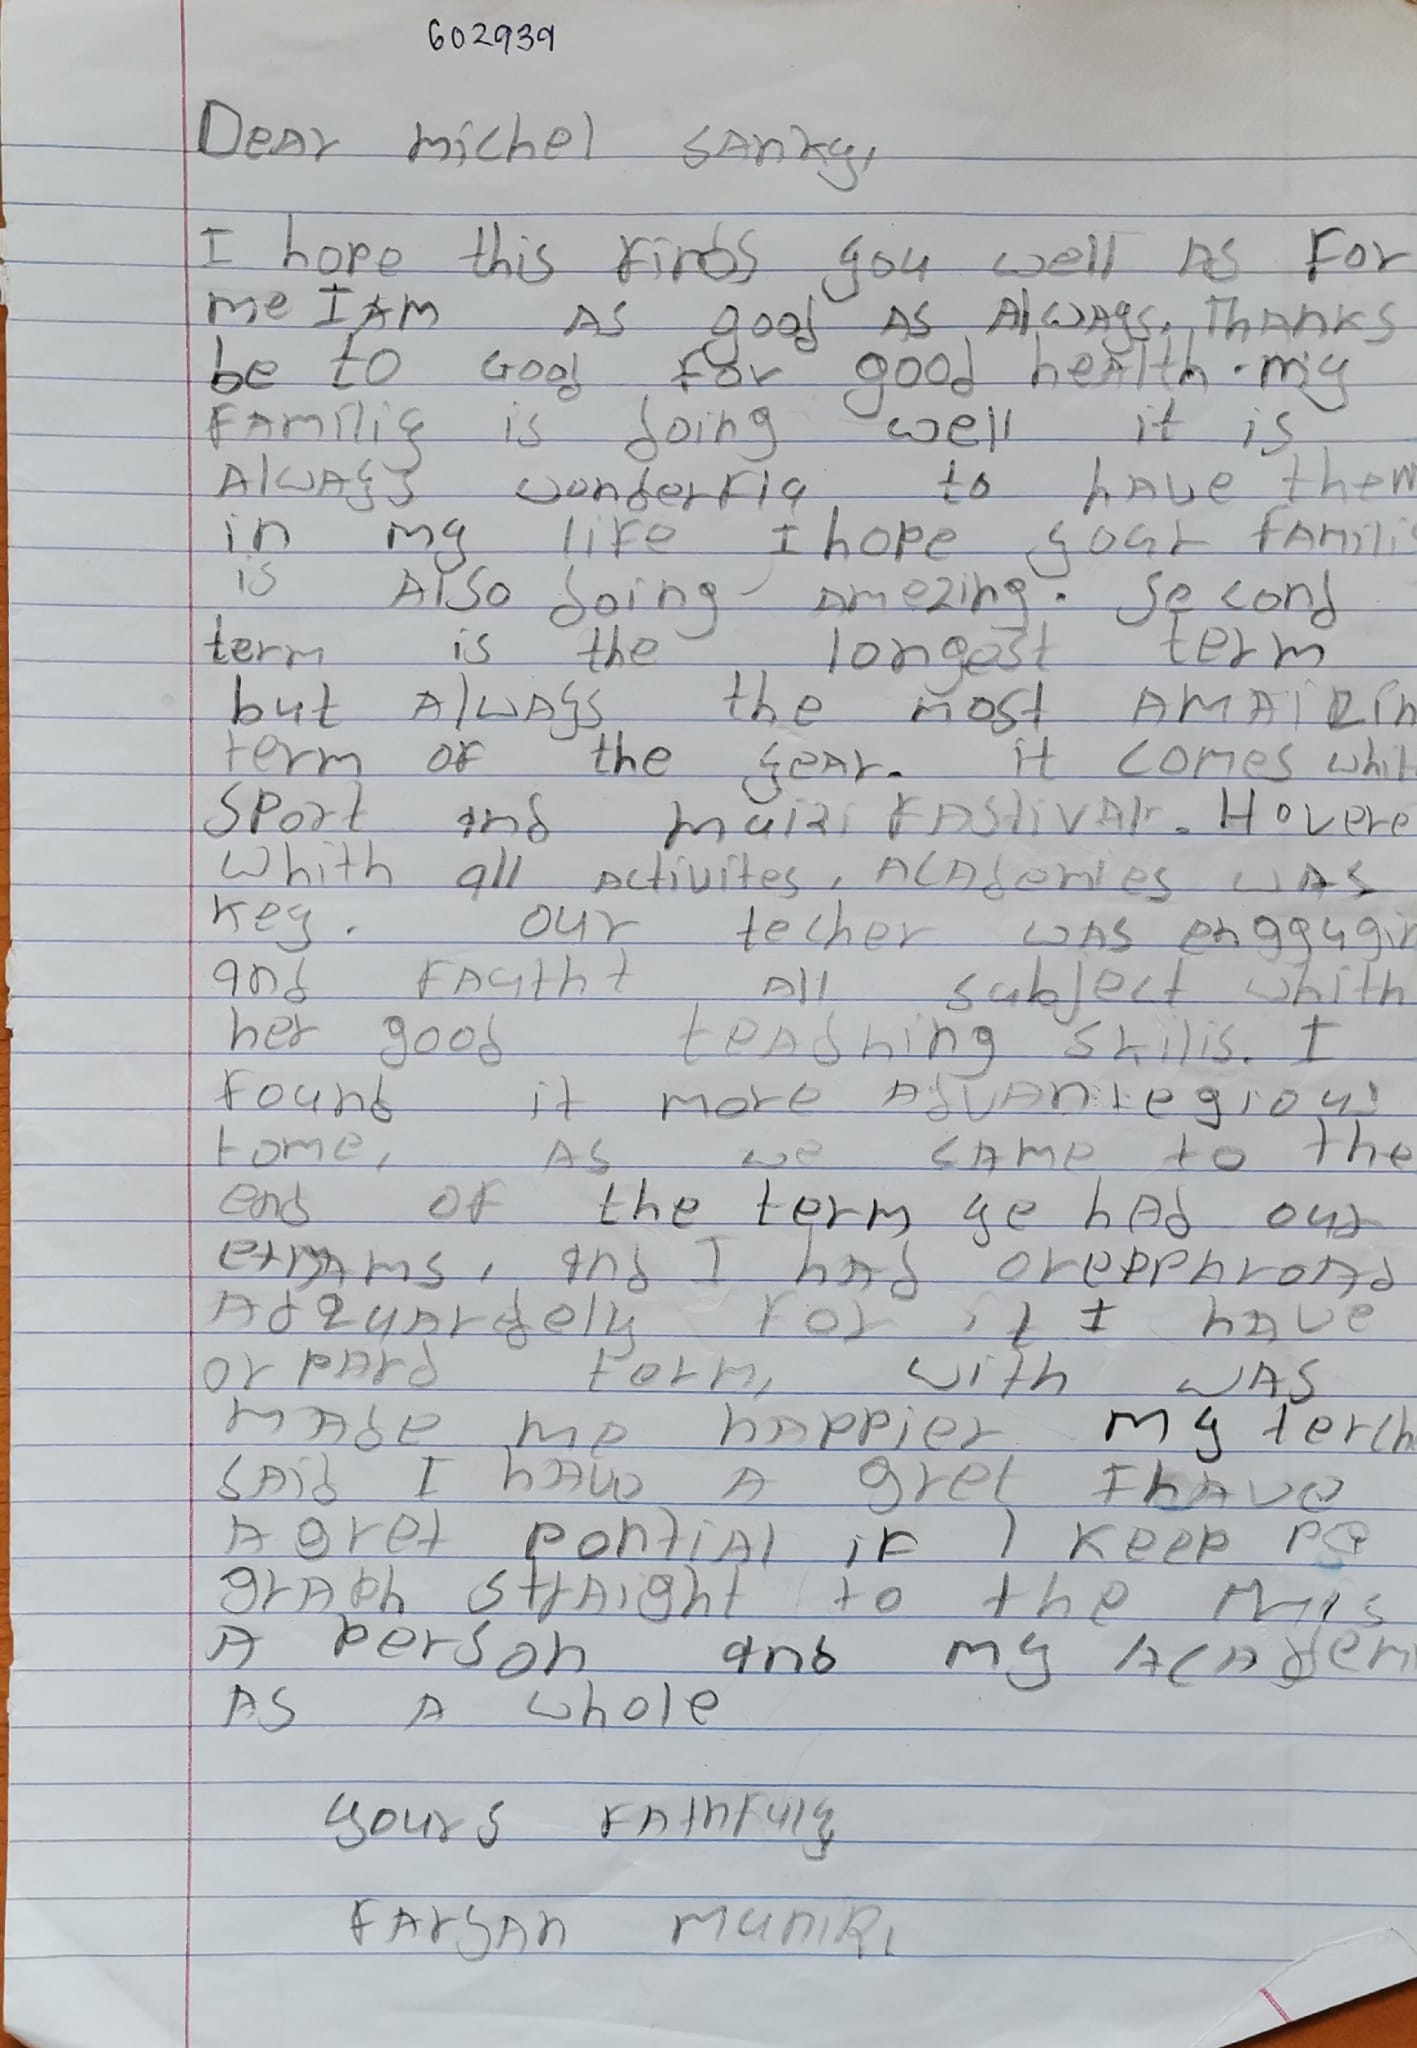 602939
Dear michel sanky,
I hope this finds you well As For
me I AM As good As Always. Thanks
be to Good for good health. my
Familiy is doing well it is
Always wonderfla to have them
in my life I hope your famili
is Also doing amezing. Second
term is the longest term
but Always the most AMAIZIn
term of the year. it comes whit
Sport and muizi FAstivAlr. Hovere
whith all activites, ACAdemies was
Key. our techer was enggugin
and FAutht All subject whith
her good teAdhing skills. I
Found it more Advantegious
tome, As we came to the
end of the term ye had our
exmams, and I had
for it I have
form, with was
made me happier my terch
said I have A gret I have
A gret pontial if I keep
graph straight to the
A person and my Academ
As A whole
yours FAthFuly
FArsAn MuniRi